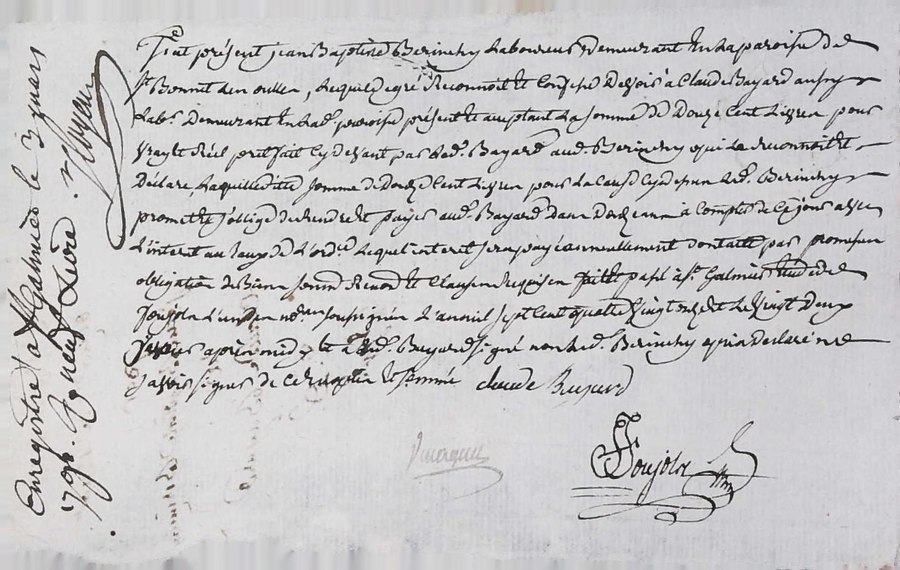 Fut présent jean Baptiste Berinchy Laboureur Demeurant En La paroisse de
St Bonnit Les oulles, Lequel de gré Reconnoit et Confesse Devoir à Claude Bayard aussy
Labr. Demeurant En Lad. paroisse présent et acceptant La somme De Douze Cent Livres pour
vray et Réel prêt fait Cy devant par led. Bayard aud. Berinchy qui Le reconnoit et
Déclare, Laquelle dite somme de Douze Cent Livres pour La Cause Cy dessus Led. Berinchy
promet et s'oblige de Rendre et payer aud. Bayard Dans Douze ans à Compter de Ce jour avec
L'interet au taux de L'ordce Lequel interet sera payé annuellement dont acte par promesses
obligation de Biens soumⁿˢ Renonⁿˢ et Clauses Requises fait et passé à St Galmier Etude de
Soujols L'un des nores soussignés L'an mil sept Cent quatre vingt Le vingt Deux
après midy et a Led. Bayard signé non Led. Berinchy qui a declaré ne
savoir signer de Ce Requis et sommé claude Bayard
Soujols
Enregistré a St Galmier le 3 mars
179 . Reçu neuf Livres